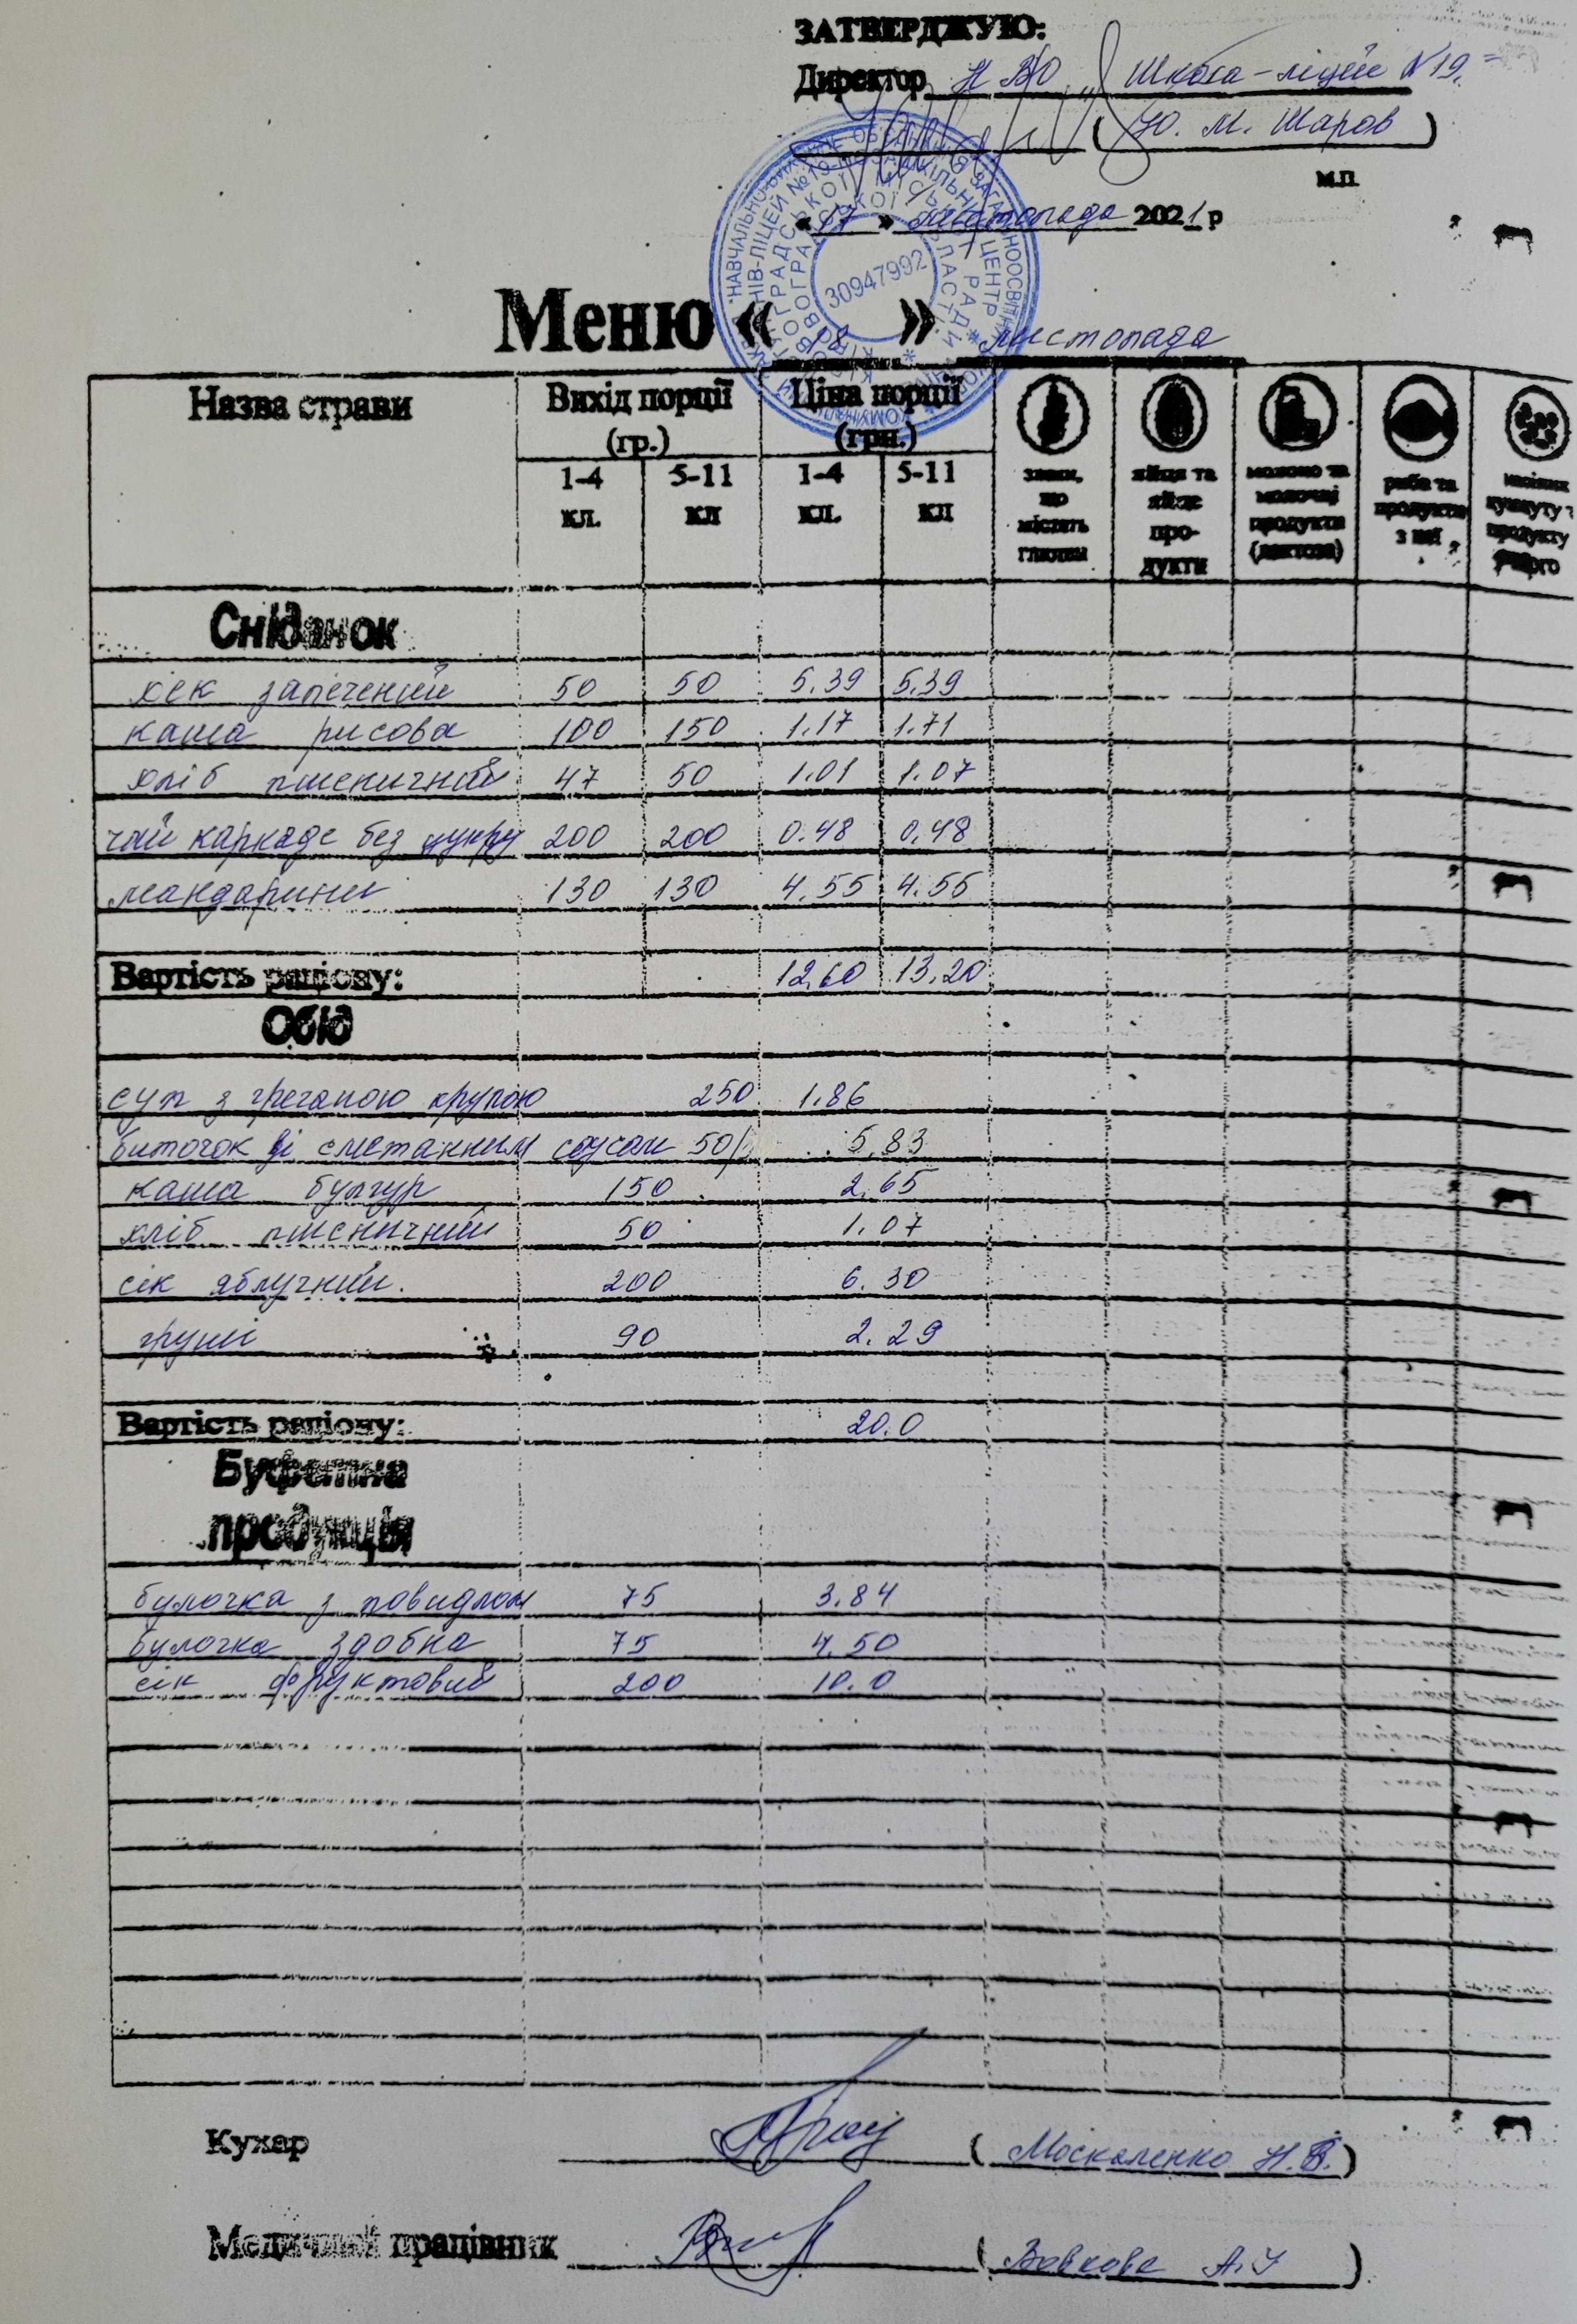 ЗАТВЕРДЖУЮ:
Директор НВО „Школа-ліцей №19"
(Ю. М. Шаров)
м.п.
«17» листопада 2021 р
30947992
Меню «18» листопада
Назва страви Вихід порції (гр.) Ціна порції (грн.)
1-4 кл. 5-11 кл 1-4 кл. 5-11 кл
злаки, що містять глютен
яйця та яйце про-дукти
молоко та молочні продукти (лактоза)
риба та продукти з неї
Сніданок
хек запечений 50 50 5.39 5.39
каша рисова 100 150 1.17 1.71
хліб пшеничний 47 50 1.01 1.07
чай каркаде без цукру 200 200 0.48 0.48
мандарини 130 130 4.55 4.55
Вартість раціону: 12,60 13,20
Обід
суп з гречаною крупою 250 1.86
биточок зі сметанним соусом 50/ 5,83
каша булгур 150 2,65
хліб пшеничний 50 1.07
сік яблучний. 200 6.30
груші 90 2.29
Вартість раціону: 20.0
Буфетна
продукція
булочка з повидлом 75 3.84
булочка здобна 75 4,50
сік фруктовий 200 10.0
Кухар (Москаленко Н.В.)
Медичний працівник (Вовкова А.)